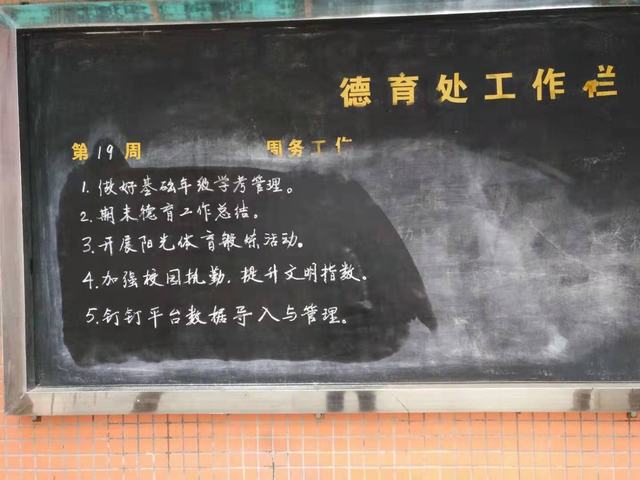 德育处工作栏
第19周 周务工作
1.做好基础年级学考管理。
2.期末德育工作总结。
3.开展阳光体育锻炼活动。
4.加强校园执勤,提升文明指数。
5.钉钉平台数据导入与管理。